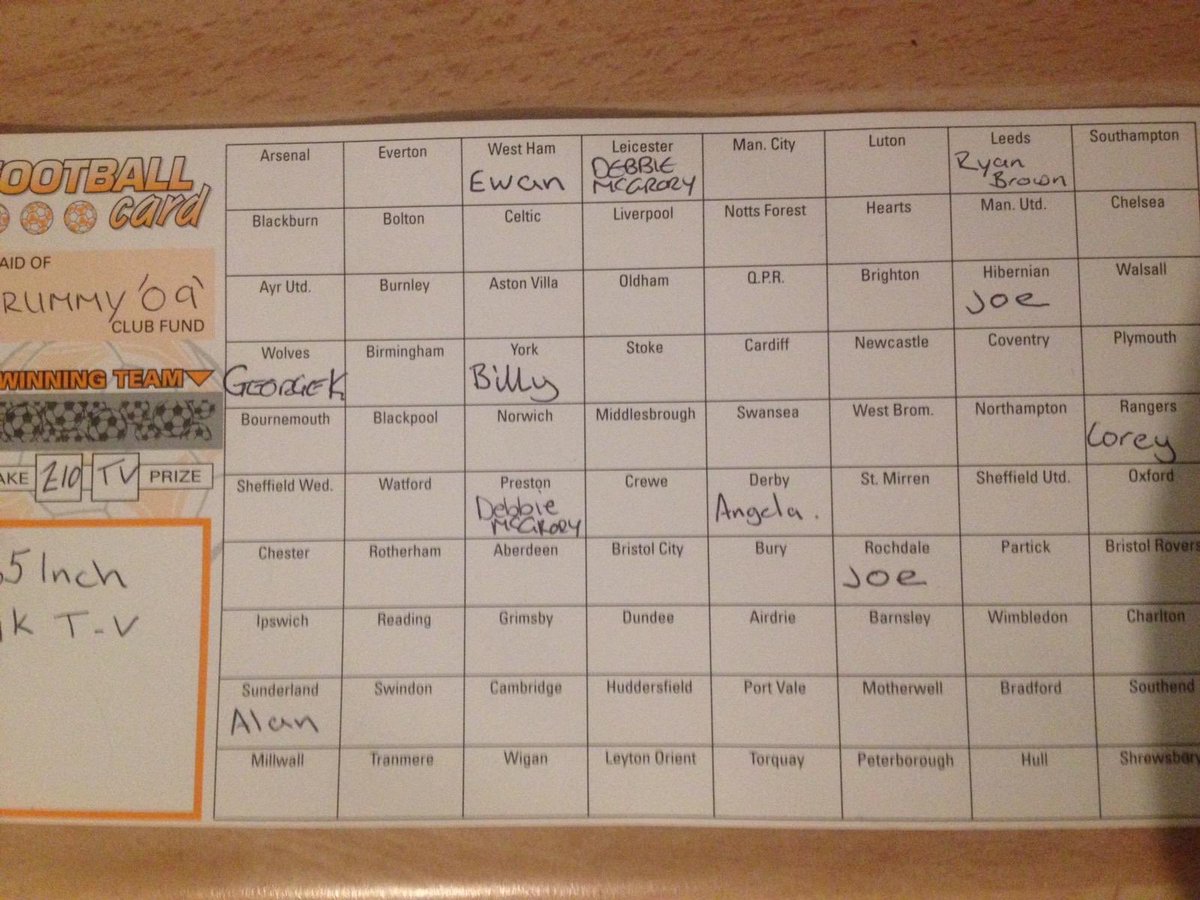 FOOTBALL
card
AID OF
RUMMY '09'
CLUB FUND
WINNING TEAM
AKE £10 TV PRIZE
5 Inch
4K T-V
Arsenal Everton West Ham Leicester Man. City Luton Leeds Southampton
Ewan DEBBIE MCGRORY Ryan Brown
Blackburn Bolton Celtic Liverpool Notts Forest Hearts Man. Utd. Chelsea
Ayr Utd. Burnley Aston Villa Oldham Q.P.R. Brighton Hibernian Walsall
Joe
Wolves Birmingham York Stoke Cardiff Newcastle Coventry Plymouth
GEORGIE K Billy
Bournemouth Blackpool Norwich Middlesbrough Swansea West Brom. Northampton Rangers
Corey
Sheffield Wed. Watford Preston Crewe Derby St. Mirren Sheffield Utd. Oxford
Debbie MCGRORY Angela.
Chester Rotherham Aberdeen Bristol City Bury Rochdale Partick Bristol Rovers
Joe
Ipswich Reading Grimsby Dundee Airdrie Barnsley Wimbledon Charlton
Sunderland Swindon Cambridge Huddersfield Port Vale Motherwell Bradford Southend
Alan
Millwall Tranmere Wigan Leyton Orient Torquay Peterborough Hull Shrewsbury